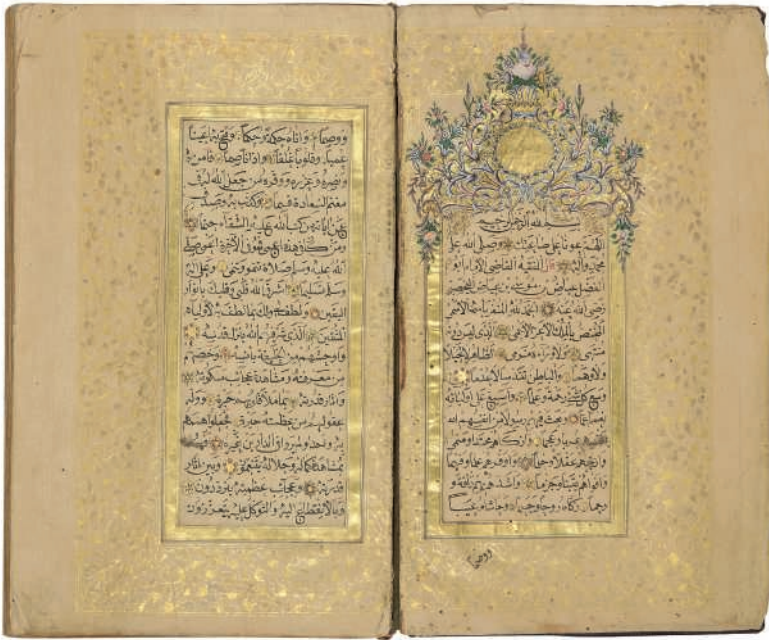 بسم الله الرحمن الرحيم
اللهم عونا على طاعتك وصلى الله على
محمد وآله قال الفقيه القاضي الامام ابو
الفضل عياض بن موسى بن عياض اليحصبي
رضي الله عنه الحمد لله المنفرد باسمه الاسمى
المختص بالملك الاعز الاحمى الذي ليس دونه
منتهى ولا وراءه مرمى الظاهر لا تخيلا
ولا وهما والباطن تقدسا لا عدما
وسع كل شيء رحمة وعلما واسبغ على اوليائه
نعما عما وبعث فيهم رسولا من انفسهم
عربا وعجما وازكاهم محتدا ومنمى
وارجحهم عقلا وحلما واوفرهم علما وفهما
واقواهم يقينا وعزما واشدهم بهم رأفة و
رحما زكاه روحا وجسما وحاشاه عيبا
ووصما
ووصما وآتاه حكمة وحكما وفتح به اعينا
عميا وقلوبا غلفا وآذانا صما فآمن به
ونصره وعزره ووقره من جعل الله له في
مغنم السعادة قسما وكذب به وصدف
عن آياته من كتب الله عليه الشقاء حتما
ومن كان في هذه اعمى فهو في الآخرة اعمى صلى
الله عليه وسلم صلاة تنمو وتنمى وعلى آله
وسلم تسليما اشرق الله قلبي وقلبك بانوار
اليقين ولطف لي ولك بما لطف به لاوليائه
المتقين الذي شرفهم الله بنزل قدسه
واوحشهم من الخليقة بانسه وخصهم
من معرفته ومشاهدة عجائب ملكوته
وآثار قدرته بما ملأ قلوبهم حبرة ووله
عقولهم في عظمته حيرة فجعلوا همهم
به واحدا ولم يروا في الدارين غيره فهم
بمشاهدة كماله وجلاله يتنعمون وبين آثار
قدرته وعجائب عظمته يترددون
وبالانقطاع اليه والتوكل عليه يتعززون